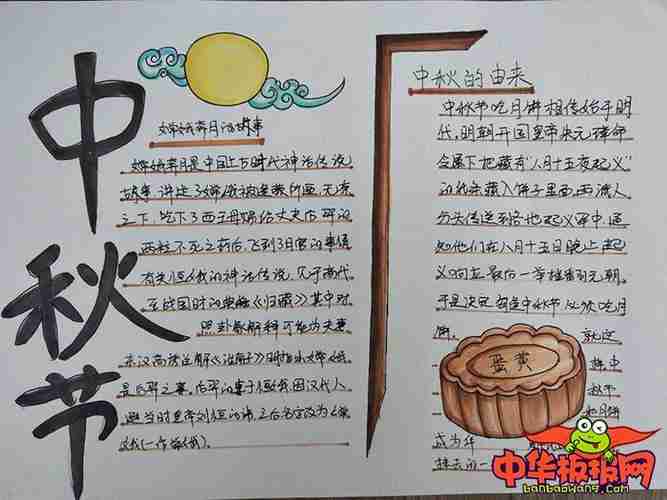 中秋节
嫦娥奔月的故事
嫦娥奔月是中国上古时代神话传说
故事,讲述了嫦娥被逢蒙所逼,无奈
之下,吃下了西王母赐给丈夫后羿的
两粒不死之药后,飞到了月宫的事情
有关嫦娥的神话传说,
至战国时的《归藏》其中对
卦象解释可能为夫妻
东汉高诱注解《淮南子》时指出嫦娥
是后羿之妻,后羿的妻子恒我因汉代人
避当时皇帝刘恒的讳,
中秋的由来
中秋节吃月饼相传始于明
代,明朝开国皇帝朱元璋命
令属下把藏有"八月十五夜起义"
的纸条藏入饼子里面,再派人
分头传送到各地起义军中,通
知他们在八月十五日晚上起
义响应,最后一举推翻元朝。
于是
中秋节
吃月
饼。
就这
蛋黄
样中
秋节
和月饼
成为
中华板报网
banbaowang.com